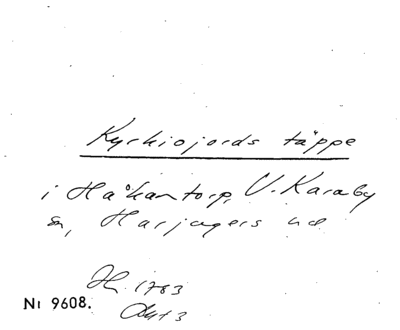 Kyrkiojords täppe
i Håkantorp, V. Karaby
sn, Harjagers hd
1783
Nr 9608.